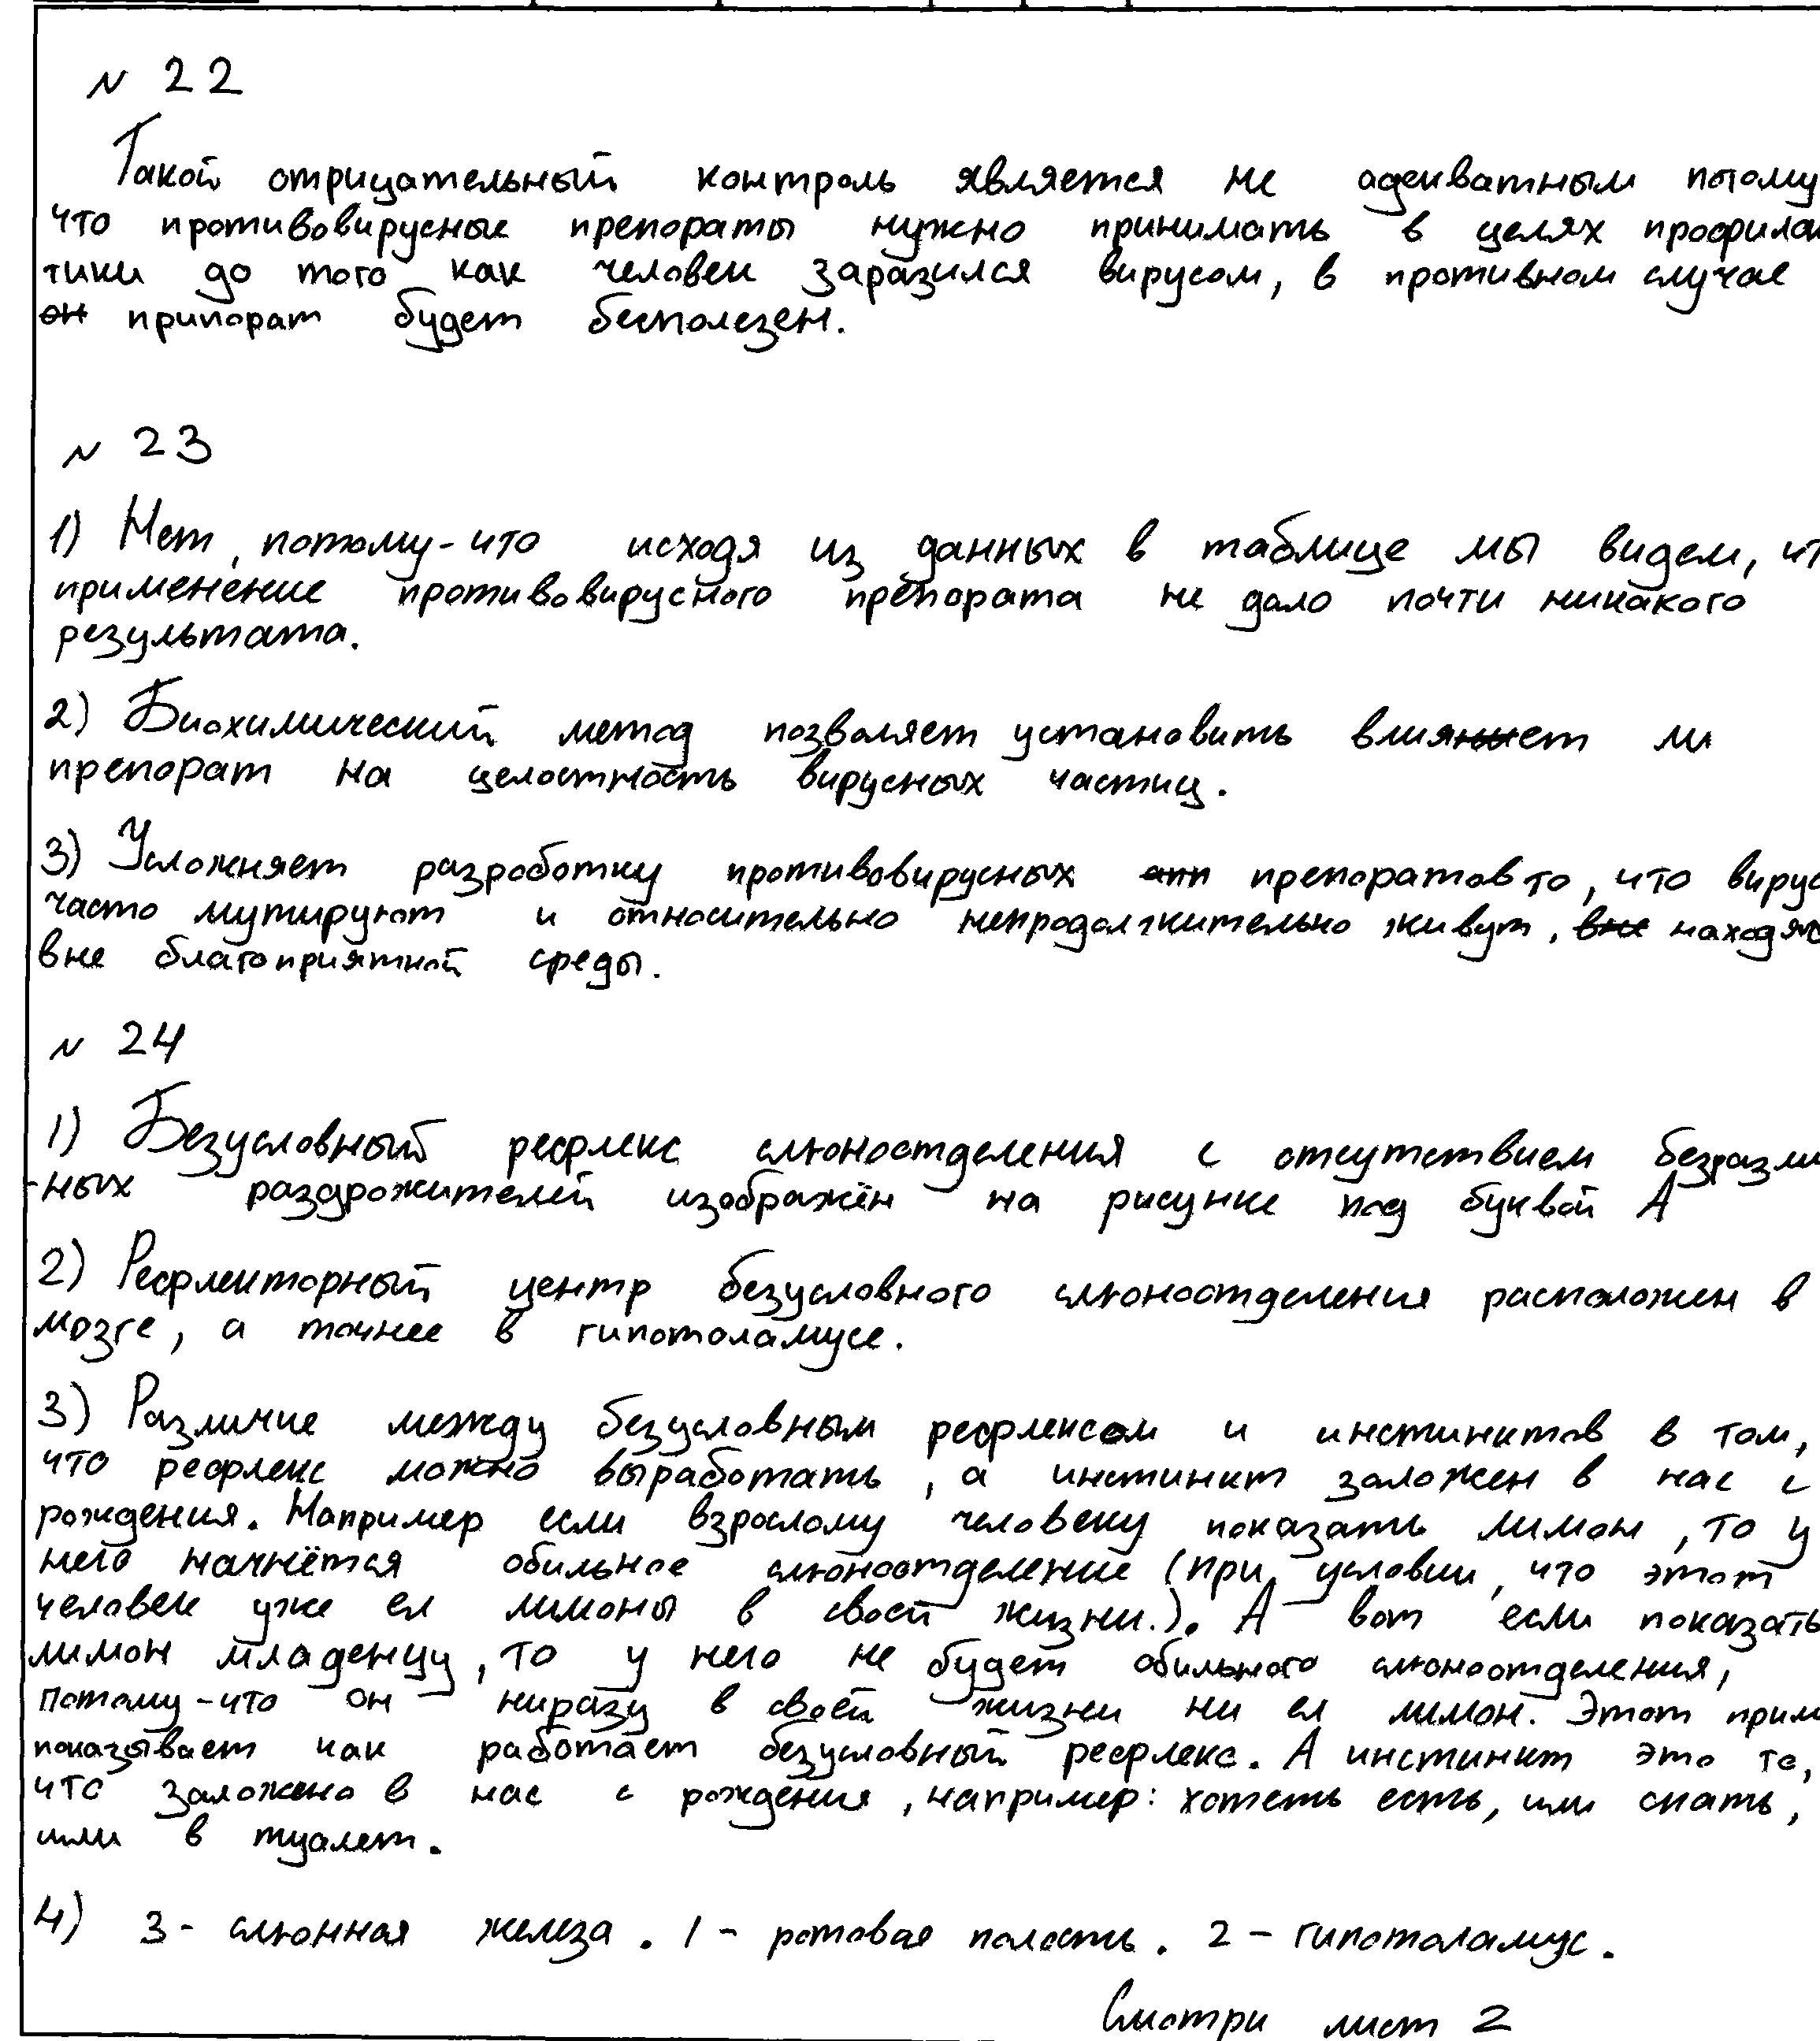 № 22
Такой отрицательный контроль является не адекватным потому
что противовирусные препораты нужно принимать в целях профилак
тики до того как человек заразился вирусом, в противном случае
он припорат будет бесполезен.
№ 23
1) Нет, потому-что исходя из данных в таблице мы видем, чт
применение противовирусного препората не дало почти никакого
результата.
2) Биохимический метод позволяет установить влияет ли
препорат на целостность вирусных частиц.
3) Усложняет разроботку противовирусных препоратов то, что вирус
часто мутируют и относительно непродолжительно живут, вне находяс
вне благоприятной среды.
№ 24
1) Безусловный рефлекс слюноотделения с отсутствием безразли
-ных раздрожителей изображён на рисунке под буквой А
2) Рефлекторный центр безусловного слюноотделения расположен в
мозге, а точнее в гипотоламусе.
3) Различие между безусловным рефлексом и инстинктов в том,
что рефлекс можно выработать, а инстинкт заложен в нас с
рождения. Например если взрослому человеку показать лимон, то у
него начнётся обильное слюноотделение (при условии, что этот
человек уже ел лимоны в своей жизни.). А вот если показать
лимон младенцу, то у него не будет обильного слюноотделения,
потому-что он ниразу в своей жизни ни ел лимон. Этот прим
показывает как работает безусловный рефлекс. А инстинкт это то,
что заложено в нас с рождения, например: хотеть есть, или спать,
или в туалет.
4) 3 - слюнная железа. 1 - ротовая полость. 2 - гипотоламус.
Смотри лист 2